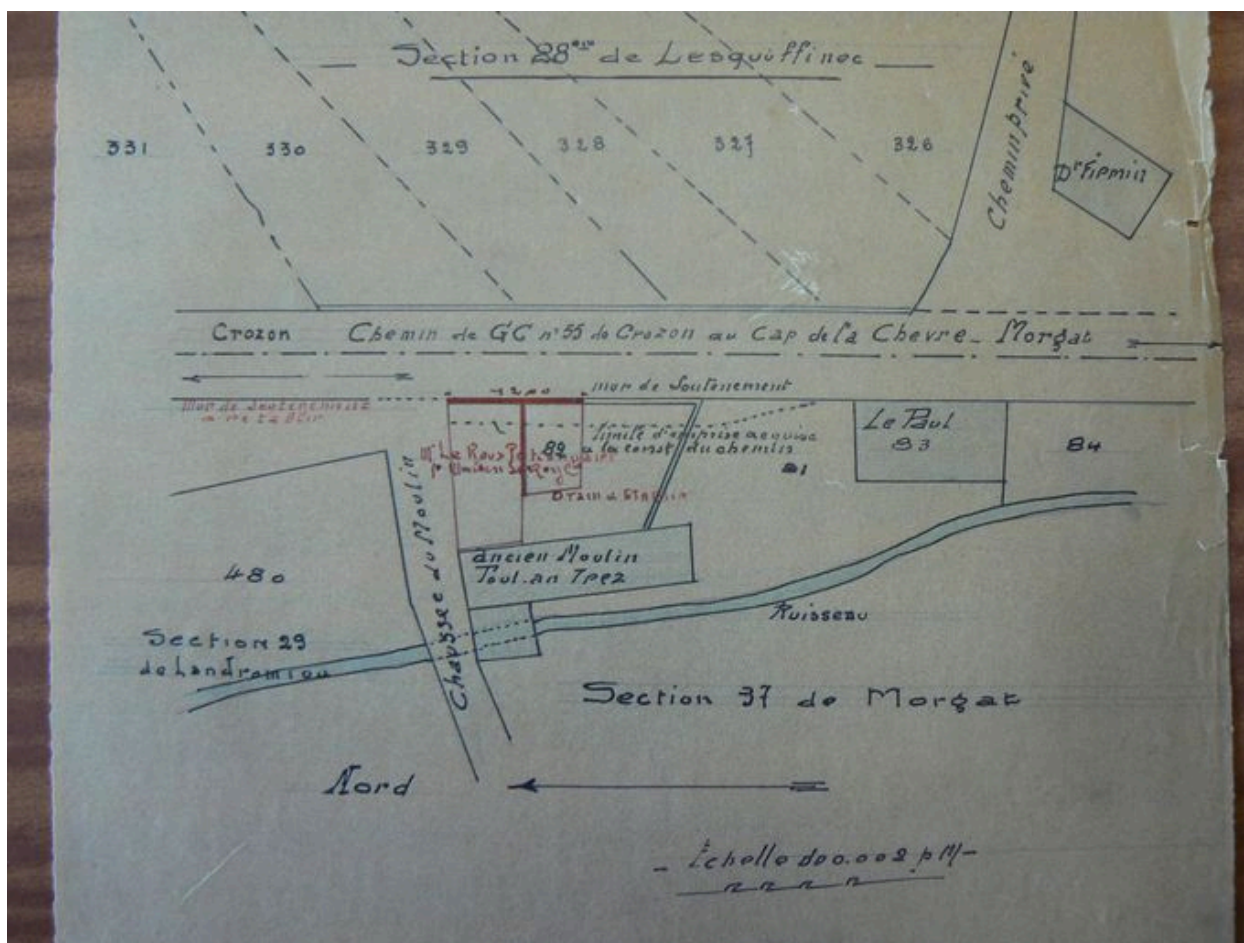 Section 28ème de Lesquiffinec
331 330 329 328 327 326
Chemin privé
Dr Firmin
Crozon Chemin de GC n°55 de Crozon au Cap de la Chevre - Morgat
mur de Soutenement
Mur de Soutenement
à rétablir
12.00
limite d'emprise acquise
à la const. du chemin
82
81
Le Paul
83
84
Mr Le Roux
Drain à établir
Chaussée du Moulin
480
ancien Moulin
Poul.an Trez
Ruisseau
Section 29
de Landromiou
Section 37 de Morgat
Nord
- Échelle de 0.002 p M -